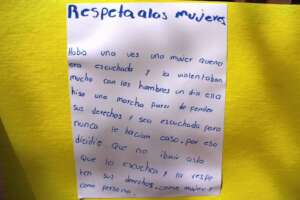 Respeta a los mujeres
Habia una ves una mujer quено
era escuchada y la violentaban
mucho con los hombres un dia ella
hiso una marcha para defender
sus derechos y sea escuchada pero
nunca le hacian caso. por eso
dicidie que no iban aido
que la escuchen y la respe
ten sus derechos como mujer y
como persona.